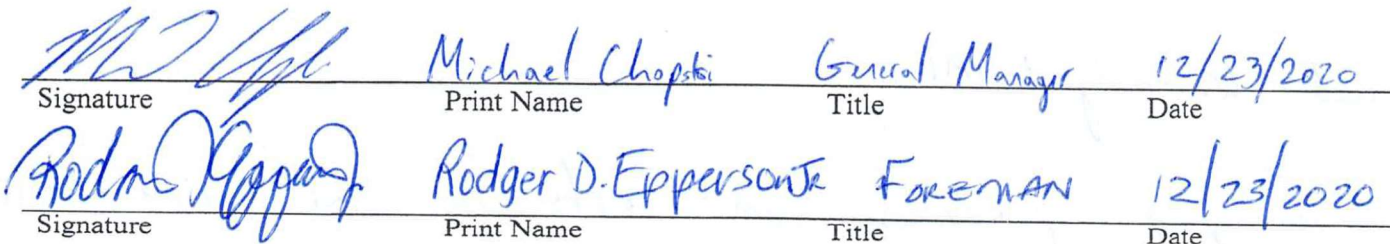 Michael Chopski General Manager 12/23/2020
Signature Print Name Title Date
Rodger D. Epperson Jr FOREMAN 12/23/2020
Signature Print Name Title Date